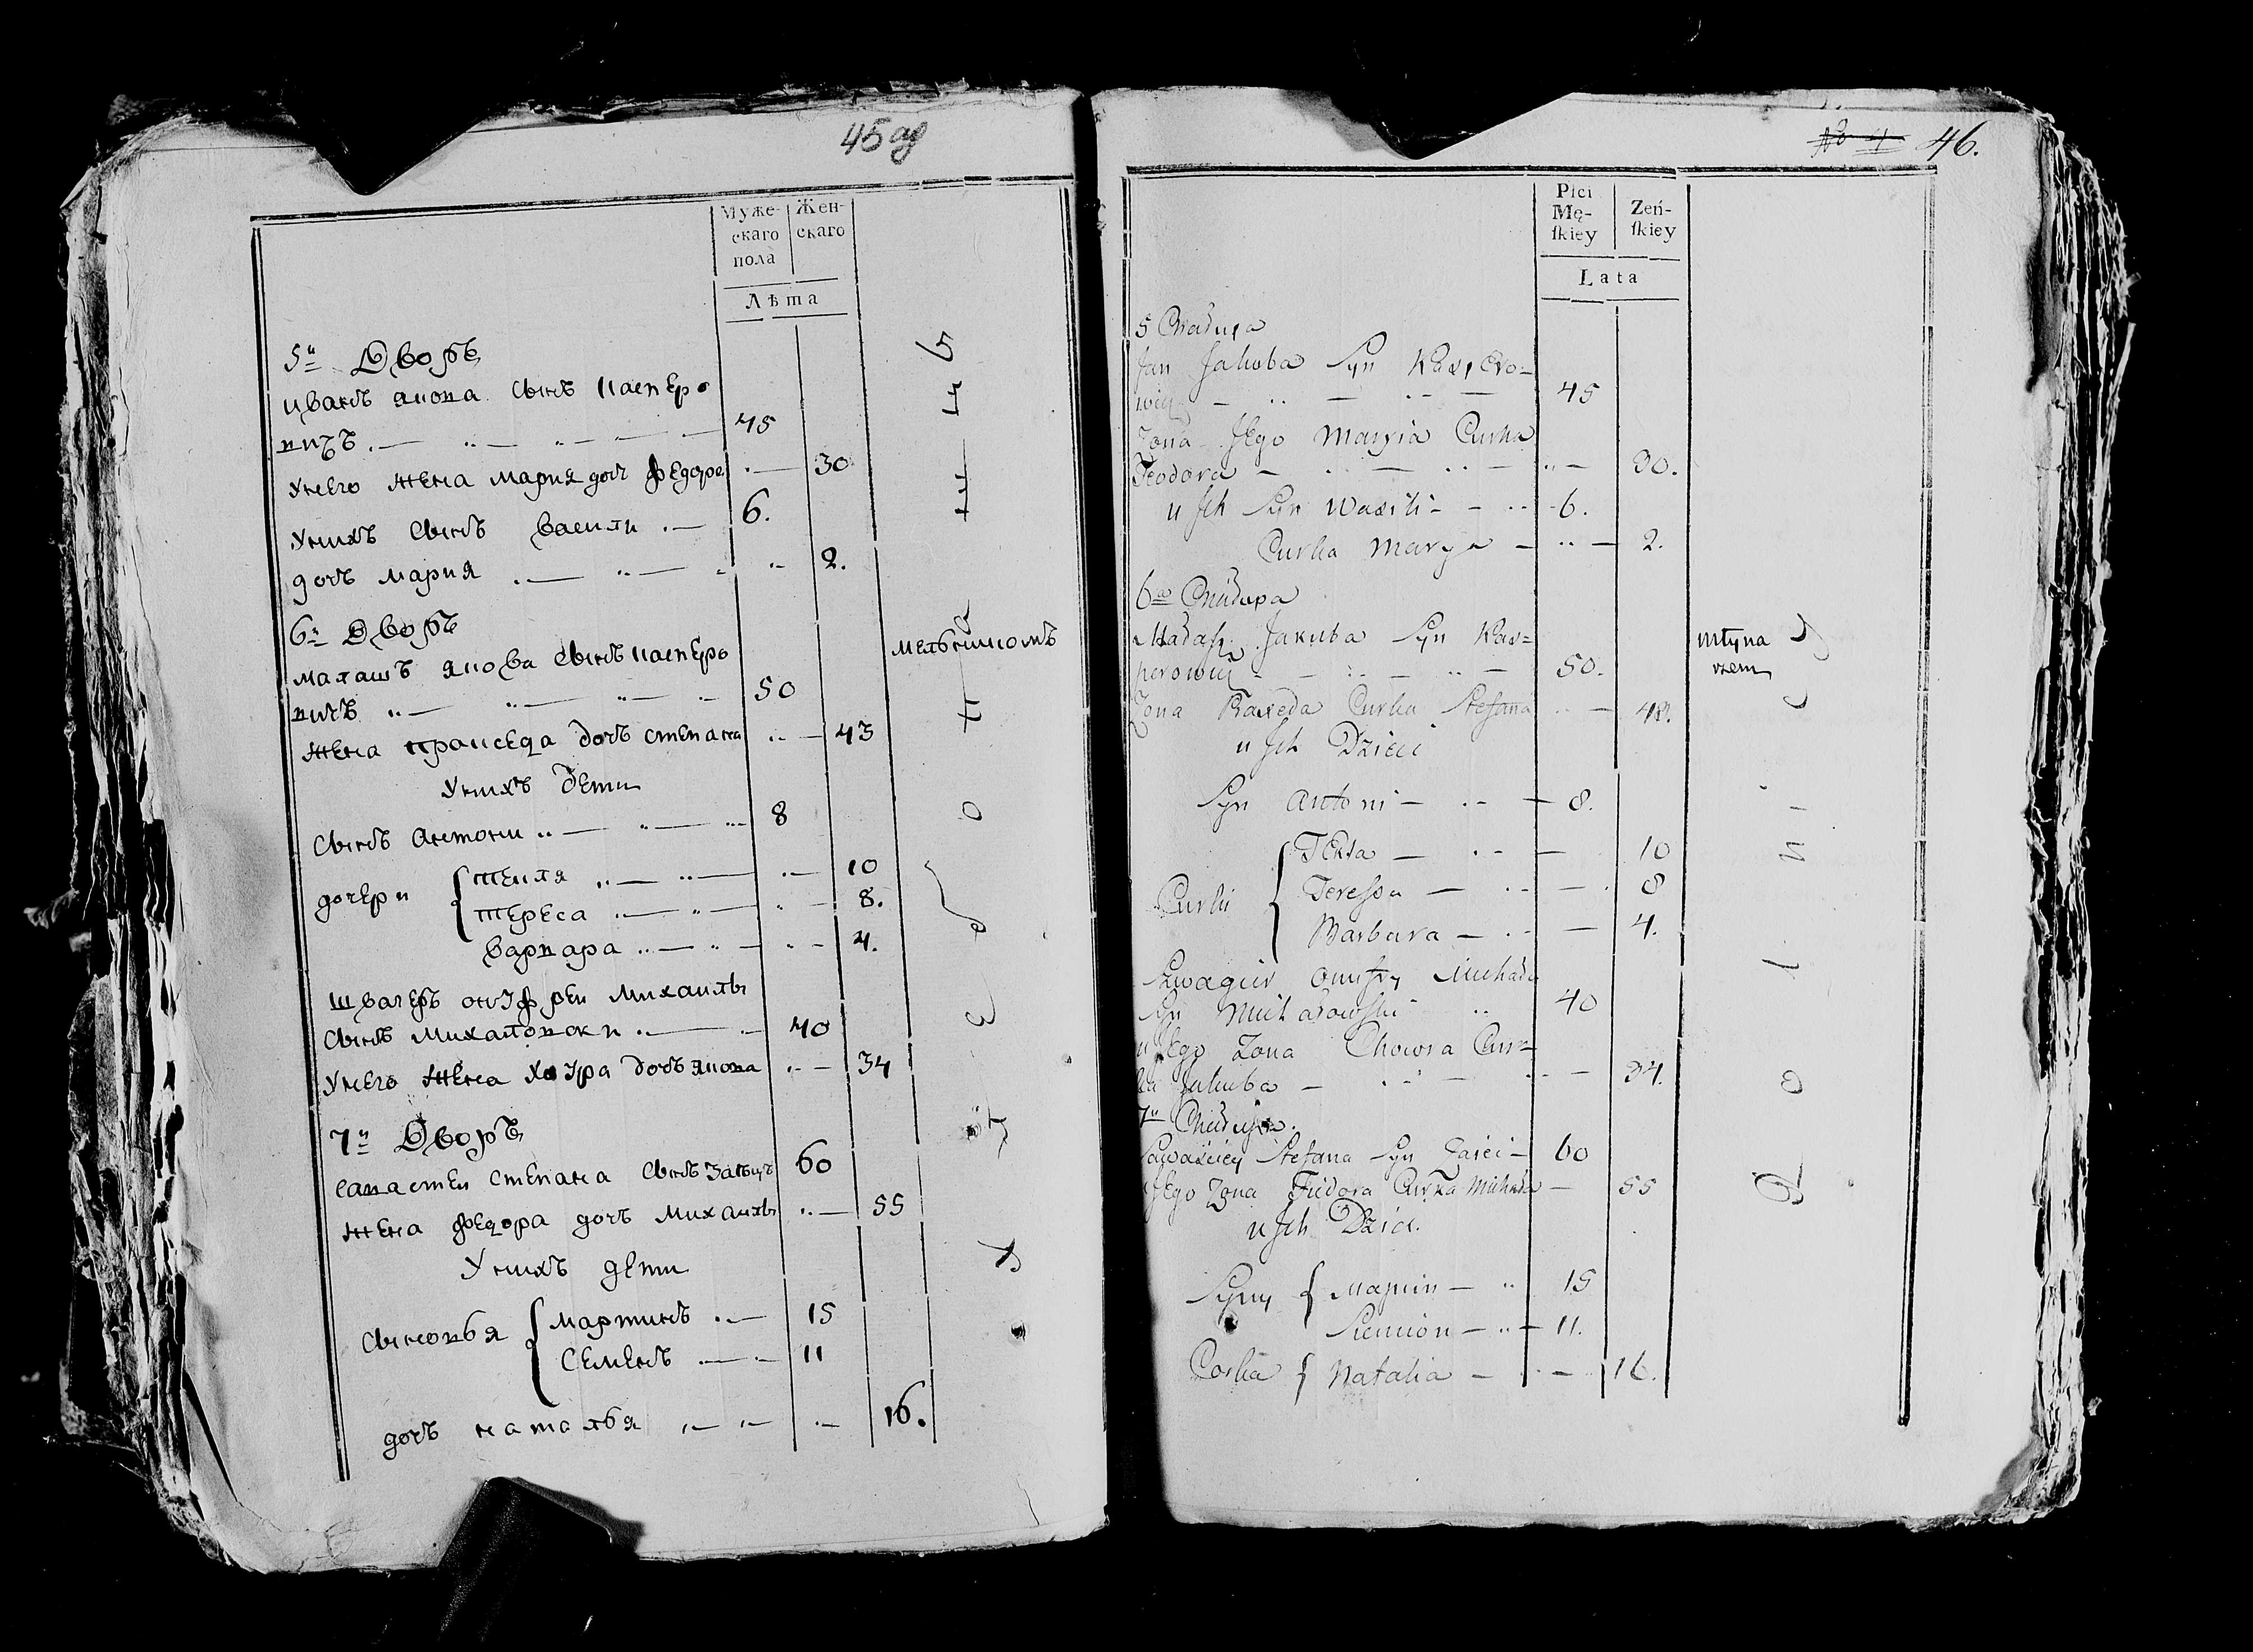 45 об
Муже-
скаго
пола
Жен-
скаго
Лѣта
5й Дворъ
иванъ якова сынъ касперо
вичъ
45
унего жена мария доч федора
30
унихъ сынъ васили
6.
дочъ мария
2.
6й Дворъ
малашъ якова сынъ касперо
вичъ
50
мельникомъ
жена пракседа дочъ степана
43
унихъ дети
сынъ антони
8
дочери
текля
10
тереса
8.
варвара
4.
швагеръ онуфреи михаилы
сынъ михаловски
40
унего жена хавра дочъ якова
34
7й Дворъ
савастеи степана сынъ заяцъ
60
жена федора дочъ михаилы
55
унихъ дети
сыновья
мартинъ
15
семенъ
11
дочъ наталья
16.
№ 4 46.
Płci
Mę-
ſkiey
Zeń-
ſkiey
Lata
5 Chałupa
Jan Jakuba Syn Kaspero-
wicz
45
Zona Jego Maryia Curka
Teodora
30.
u Ich Syn Wasili
6.
Curka Marya
2.
6a Chałupa
Małasz Jakuba Syn Kas-
perowicz
50.
Młyna
rzem
Zona Praxeda Curka Stefana
43.
u Ich Dzieci
Syn Antoni
8.
Curki
Tekla
10
Teressa
8
Barbara
4.
Szwagier Onufry Michała
Syn Michałowski
40
u Jego Zona Chowra Cur-
ka Jakuba
34.
7a Chałupa.
Sawaściey Stefana Syn Zaiec
60
Jego Zona Fiedora Curka Michała
55
u Ich Dzieci
Syny
Marcin
15
Siemion
11.
Corka
Natalia
16.